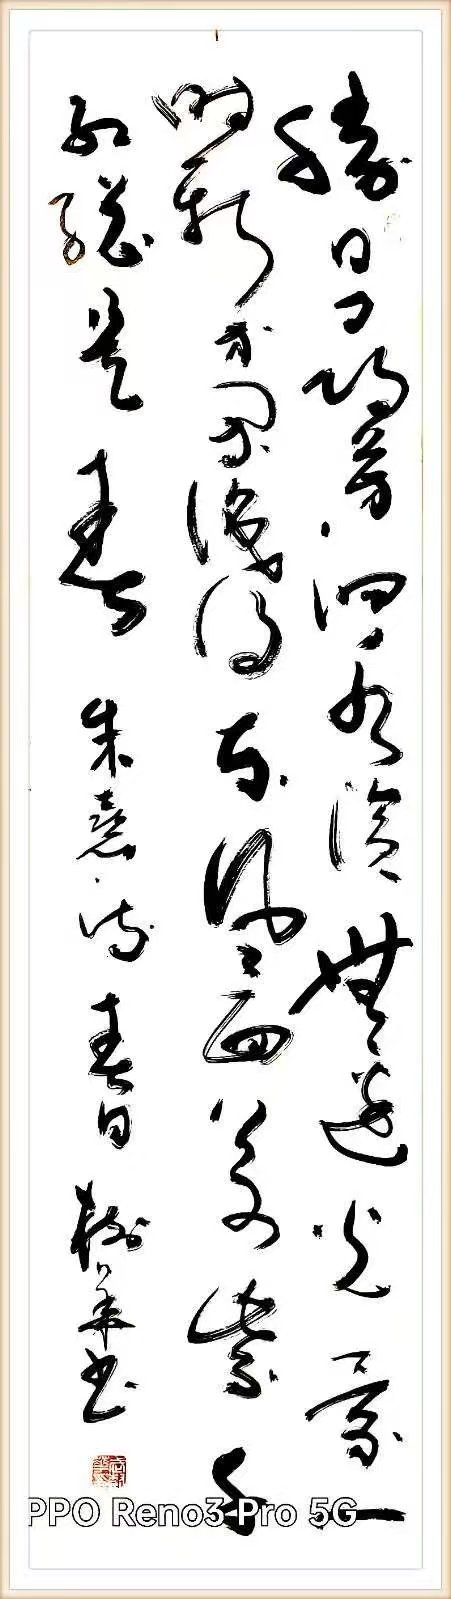 勝日尋芳泗水濱無邊光景一
時新等閒識得東風面萬紫千
紅總是春 朱熹詩 春日 樹華书
PPO Reno3 Pro 5G